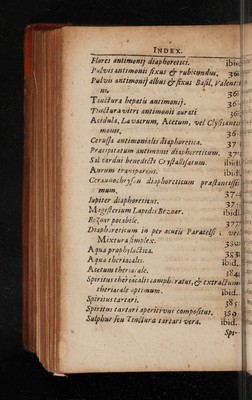 INDEX.
Flores antimonij diaphoretici. ibid.
Pulvis antimonii fixus & rubicundus. 36
Pulvis antimonij albus & fixus Basil. Valenti
ni. 36
Tinctura hepatis antimonij. 36
Tinctura vitri antimonii aurati 36
Acidula, Lavacrum, Acetum, vel Clystianti
monii, 36
Cerussa antimonialis diaphoretica. 37
Præcipitatum antimonii diaphoreticum. 37
Sal cardui benedicti Crystallisatum. ibid.
Aurum transparens. ibid.
Ceraunochryson diaphoreticum præstantissi
mum. 37
Iupiter diaphoreticus. 37
Magisterium Lapidis Bezoar. ibid.
Bezoar potabile. 377
Diaphoreticum in peracutis Paracelsi, vel
Mixtura simplex. 380
Aqua prophylactica. 383
Aqua theriacalis. ibid.
Acetum theriacale. 384
Spiritus theriacalis camphoratus, & extractum
theriacale optimum. ibid.
Spiritus tartari. 385
Spiritus tartari aperitivus compositus. 389
Sulphur seu Tinctura tartari vera. ibid.
Spi-